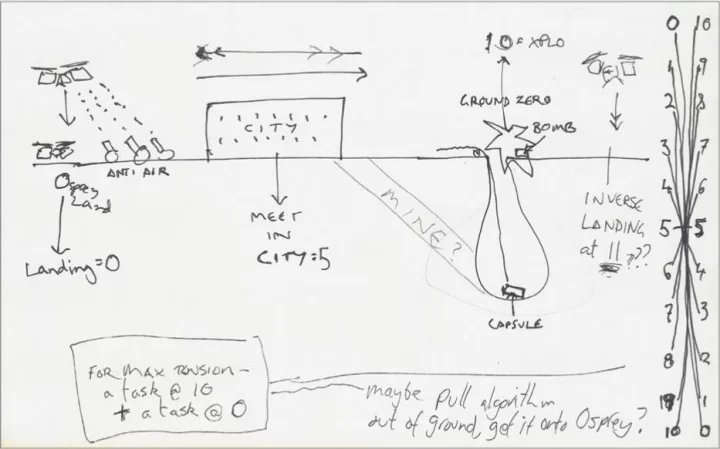 10 = XPLO
GROUND ZERO
BOMB
CITY
ANTI AIR
Osprey
Land
Landing=0
MEET
IN
CITY=5
MINE?
CAPSULE
INVERSE
LANDING
at 11???
FOR MAX TENSION—
a task @ 10
+ a task @ 0
maybe pull algorithm
out of ground, get it onto Osprey?
0 10
1 9
2 8
3 7
4 6
5 5
6 4
7 3
8 2
9 1
10 0